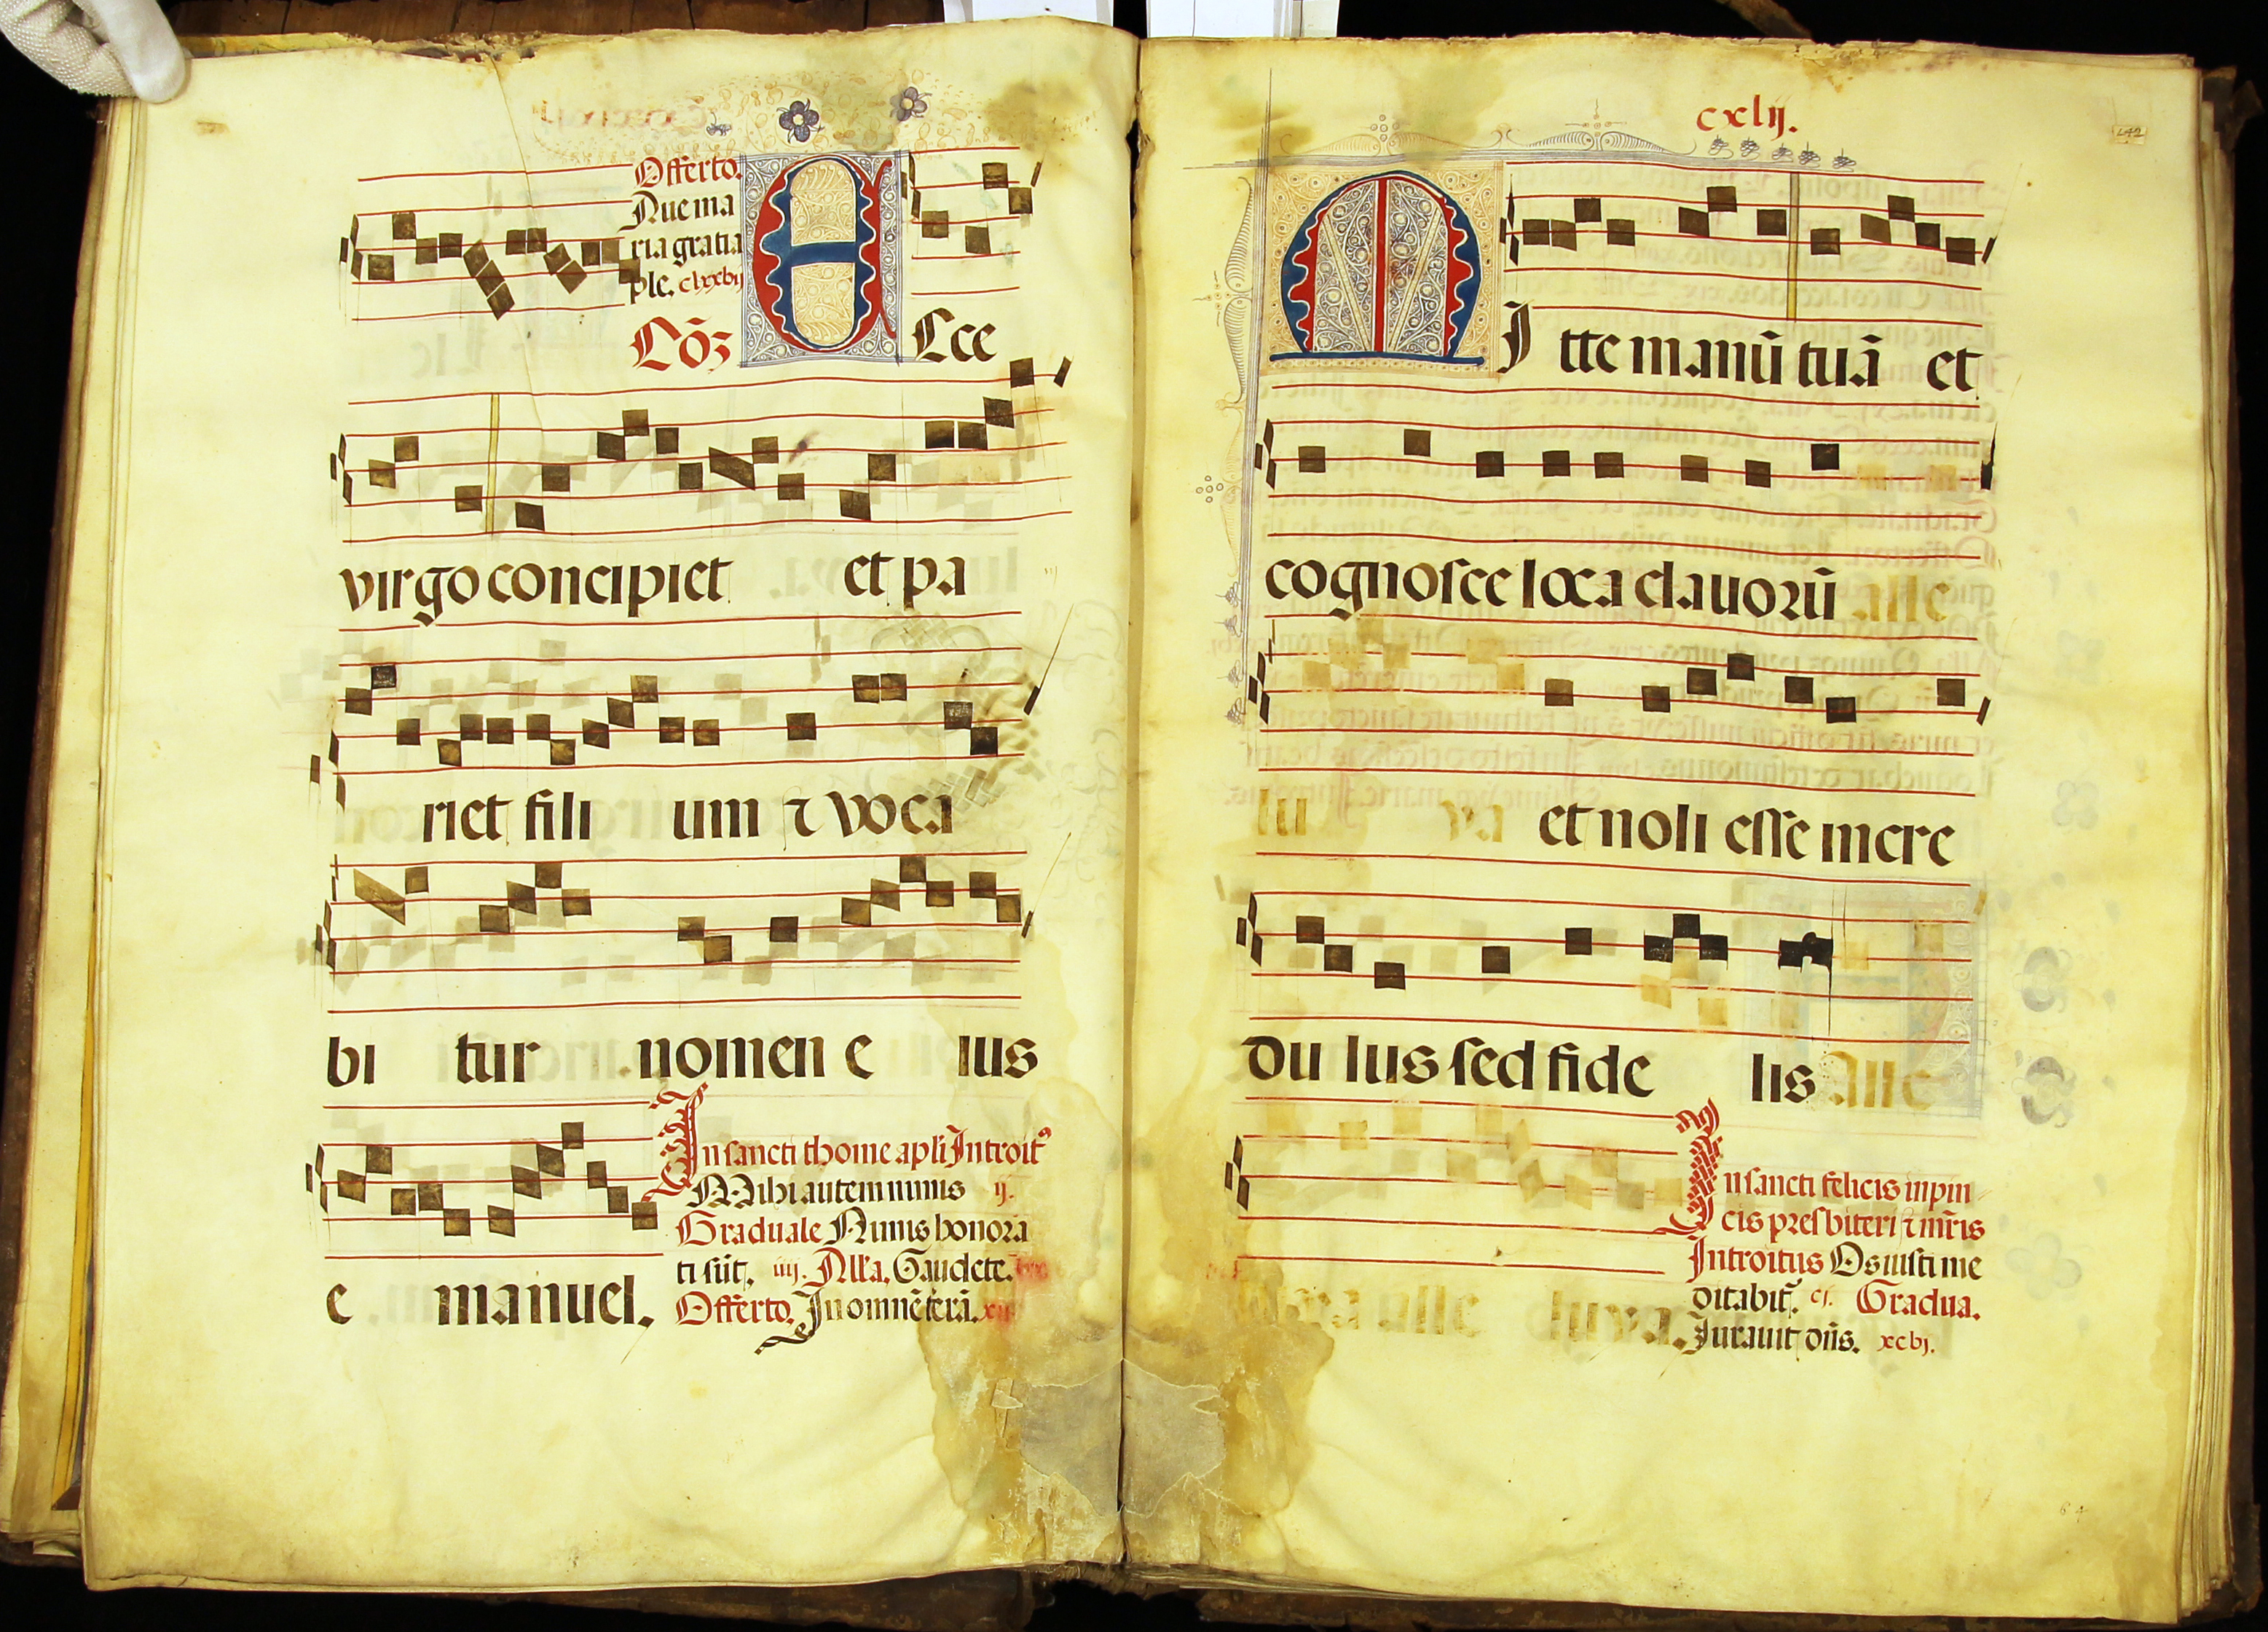 Offerto.
Aue ma
ria gratia
ple. clxxvij
Cōꝫ Ecce
virgo concipiet et pa
riet fili um ⁊ voca
bi tur nomen e ius
In sancti thome apl̄i Introit⁹
Mihi autem nimis ij.
Graduale Nimis honora
ti sūt. iiij. All'a. Gaudete.
e manuel. Offerto. In omnē terā. xij
cxlij.
142
MItte manū tuā et
cognosce loca clauorū alle
lu ya et noli esse incre
du lus sed fide lis Alle
In sancti felicis in pin
cis presbiteri ⁊ mr̄is
Introitus Os iusti me
ditabit̄. cj. Gradua.
luya alle luya. Iurauit dn̄s. xcvj.
64